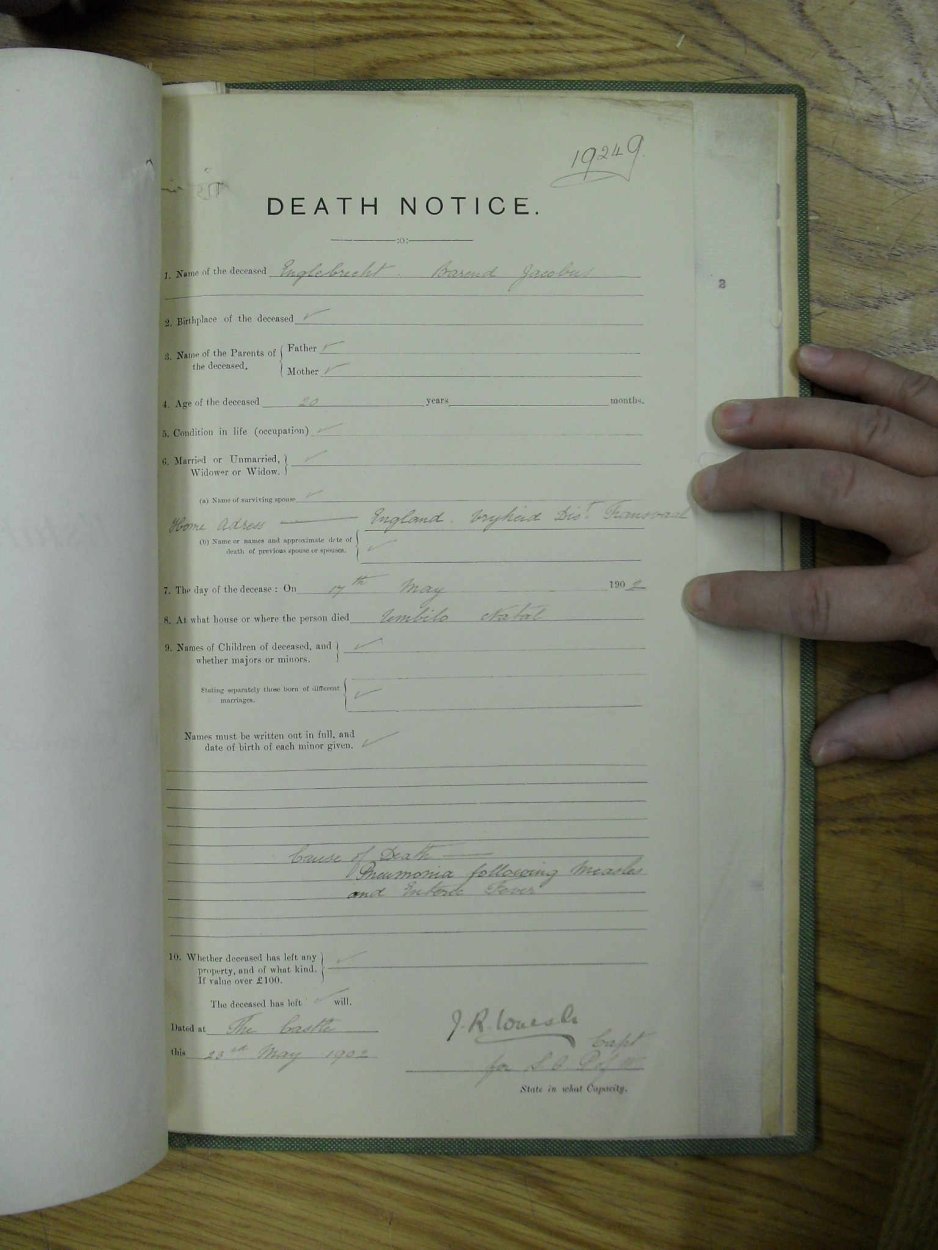 19249
DEATH NOTICE.
:o:
1. Name of the deceased Englebrecht. Barend Jacobus
2
2. Birthplace of the deceased ✓
3. Name of the Parents of the deceased, { Father ✓
Mother ✓
4. Age of the deceased 20 years months.
5. Condition in life (occupation) ✓
6. Married or Unmarried, } ✓
Widower or Widow.
(a) Name of surviving spouse ✓
Home Adress — England. Vryheid Dist. Transvaal
(b) Name or names and approximate date of
death of previous spouse or spouses. { ✓
7. The day of the decease: On 17th May 1902
8. At what house or where the person died Umbilo Natal
9. Names of Children of deceased, and } ✓
whether majors or minors.
Stating separately those born of different
marriages. { ✓
Names must be written out in full, and
date of birth of each minor given. ✓
Cause of Death —
Pneumonia following Measles
and Enteric Fever
10. Whether deceased has left any } ✓
property, and of what kind.
If value over £100.
The deceased has left ✓ will.
Dated at The Castle
J.R.
Capt
this 23rd May 1902
for S.O. P of W
State in what Capacity.